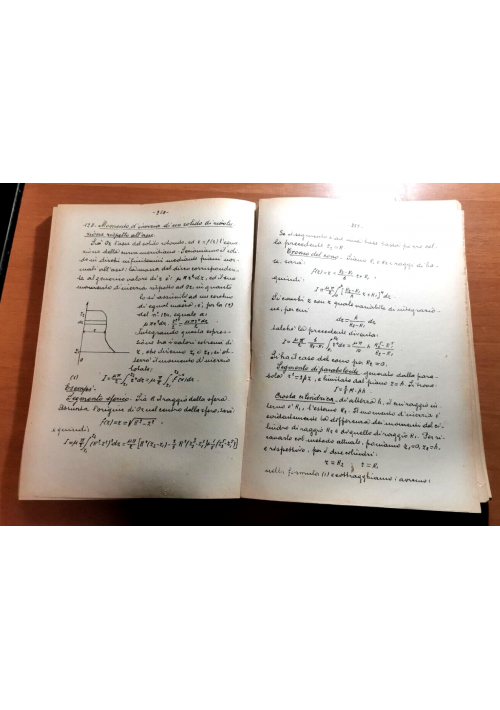 128. Momento d'inerzia di un solido di rivolu-
zione rispetto all'asse.
Sia Oz l'asse del solido rotondo, ed r = f(z) l'equa-
zione della curva meridiana. Immaginiamo il soli-
do in dischi infinitesimi mediante piani nor-
mali all'asse: la massa del disco corrisponden-
te al generico valore di z è: μ π r² dz, ed il suo
momento d'inerzia rispetto ad Oz, in quanto
lo si assimili ad un cerchio
di egual massa, è, per la
del n° 120, eguale a:
μ π r² dz · r²/2 = μπ r⁴ dz / 2
Integrando questa espres-
sione tra i valori estremi di
z, che diremo z₁ e z₂, si ot-
terrà il momento d'inerzia
totale:
(1) I = μπ/2 ∫ r⁴ dz = μ π/2 ∫ f⁴(z) dz.
Esempi:
Segmento sferico. Sia R il raggio della sfera.
Assunta l'origine di Oz nel centro della sfera, sarà
f(z) = r = √R² - z²
e quindi:
la precedente z₂ = R
Tronco di cono. Siano R₁ e R₂ i raggi di ba-
se. Sarà:
f(z) = r = R₂ - R₁ / h z + R₁
quindi:
I = μπ/2 ∫ (R₂ - R₁ / h z + R₁)⁴ dz
Si cambi z con r quale variabile di integrazio-
ne, per cui
dz = h / R₂ - R₁ dr
talchè la precedente diventa:
Si ha il caso del cono per R₂ = 0.
Segmento di paraboloide generato dalla para-
bola r² = 2pz, e limitato dal piano z = h. Si trova
Crosta cilindrica, di altezza h, il cui raggio in-
terno è R₁, l'esterno R₂. Il momento d'inerzia è
evidentemente la differenza dei momenti del ci-
lindro di raggio R₂ e di quello di raggio R₁. Per ri-
cavarlo col metodo attuale, poniamo z₁=0, z₂=h,
e rispettivo, per i due cilindri:
r = R₂ ; r = R₁
nella formula (1) e sottragghiamo; avremo: